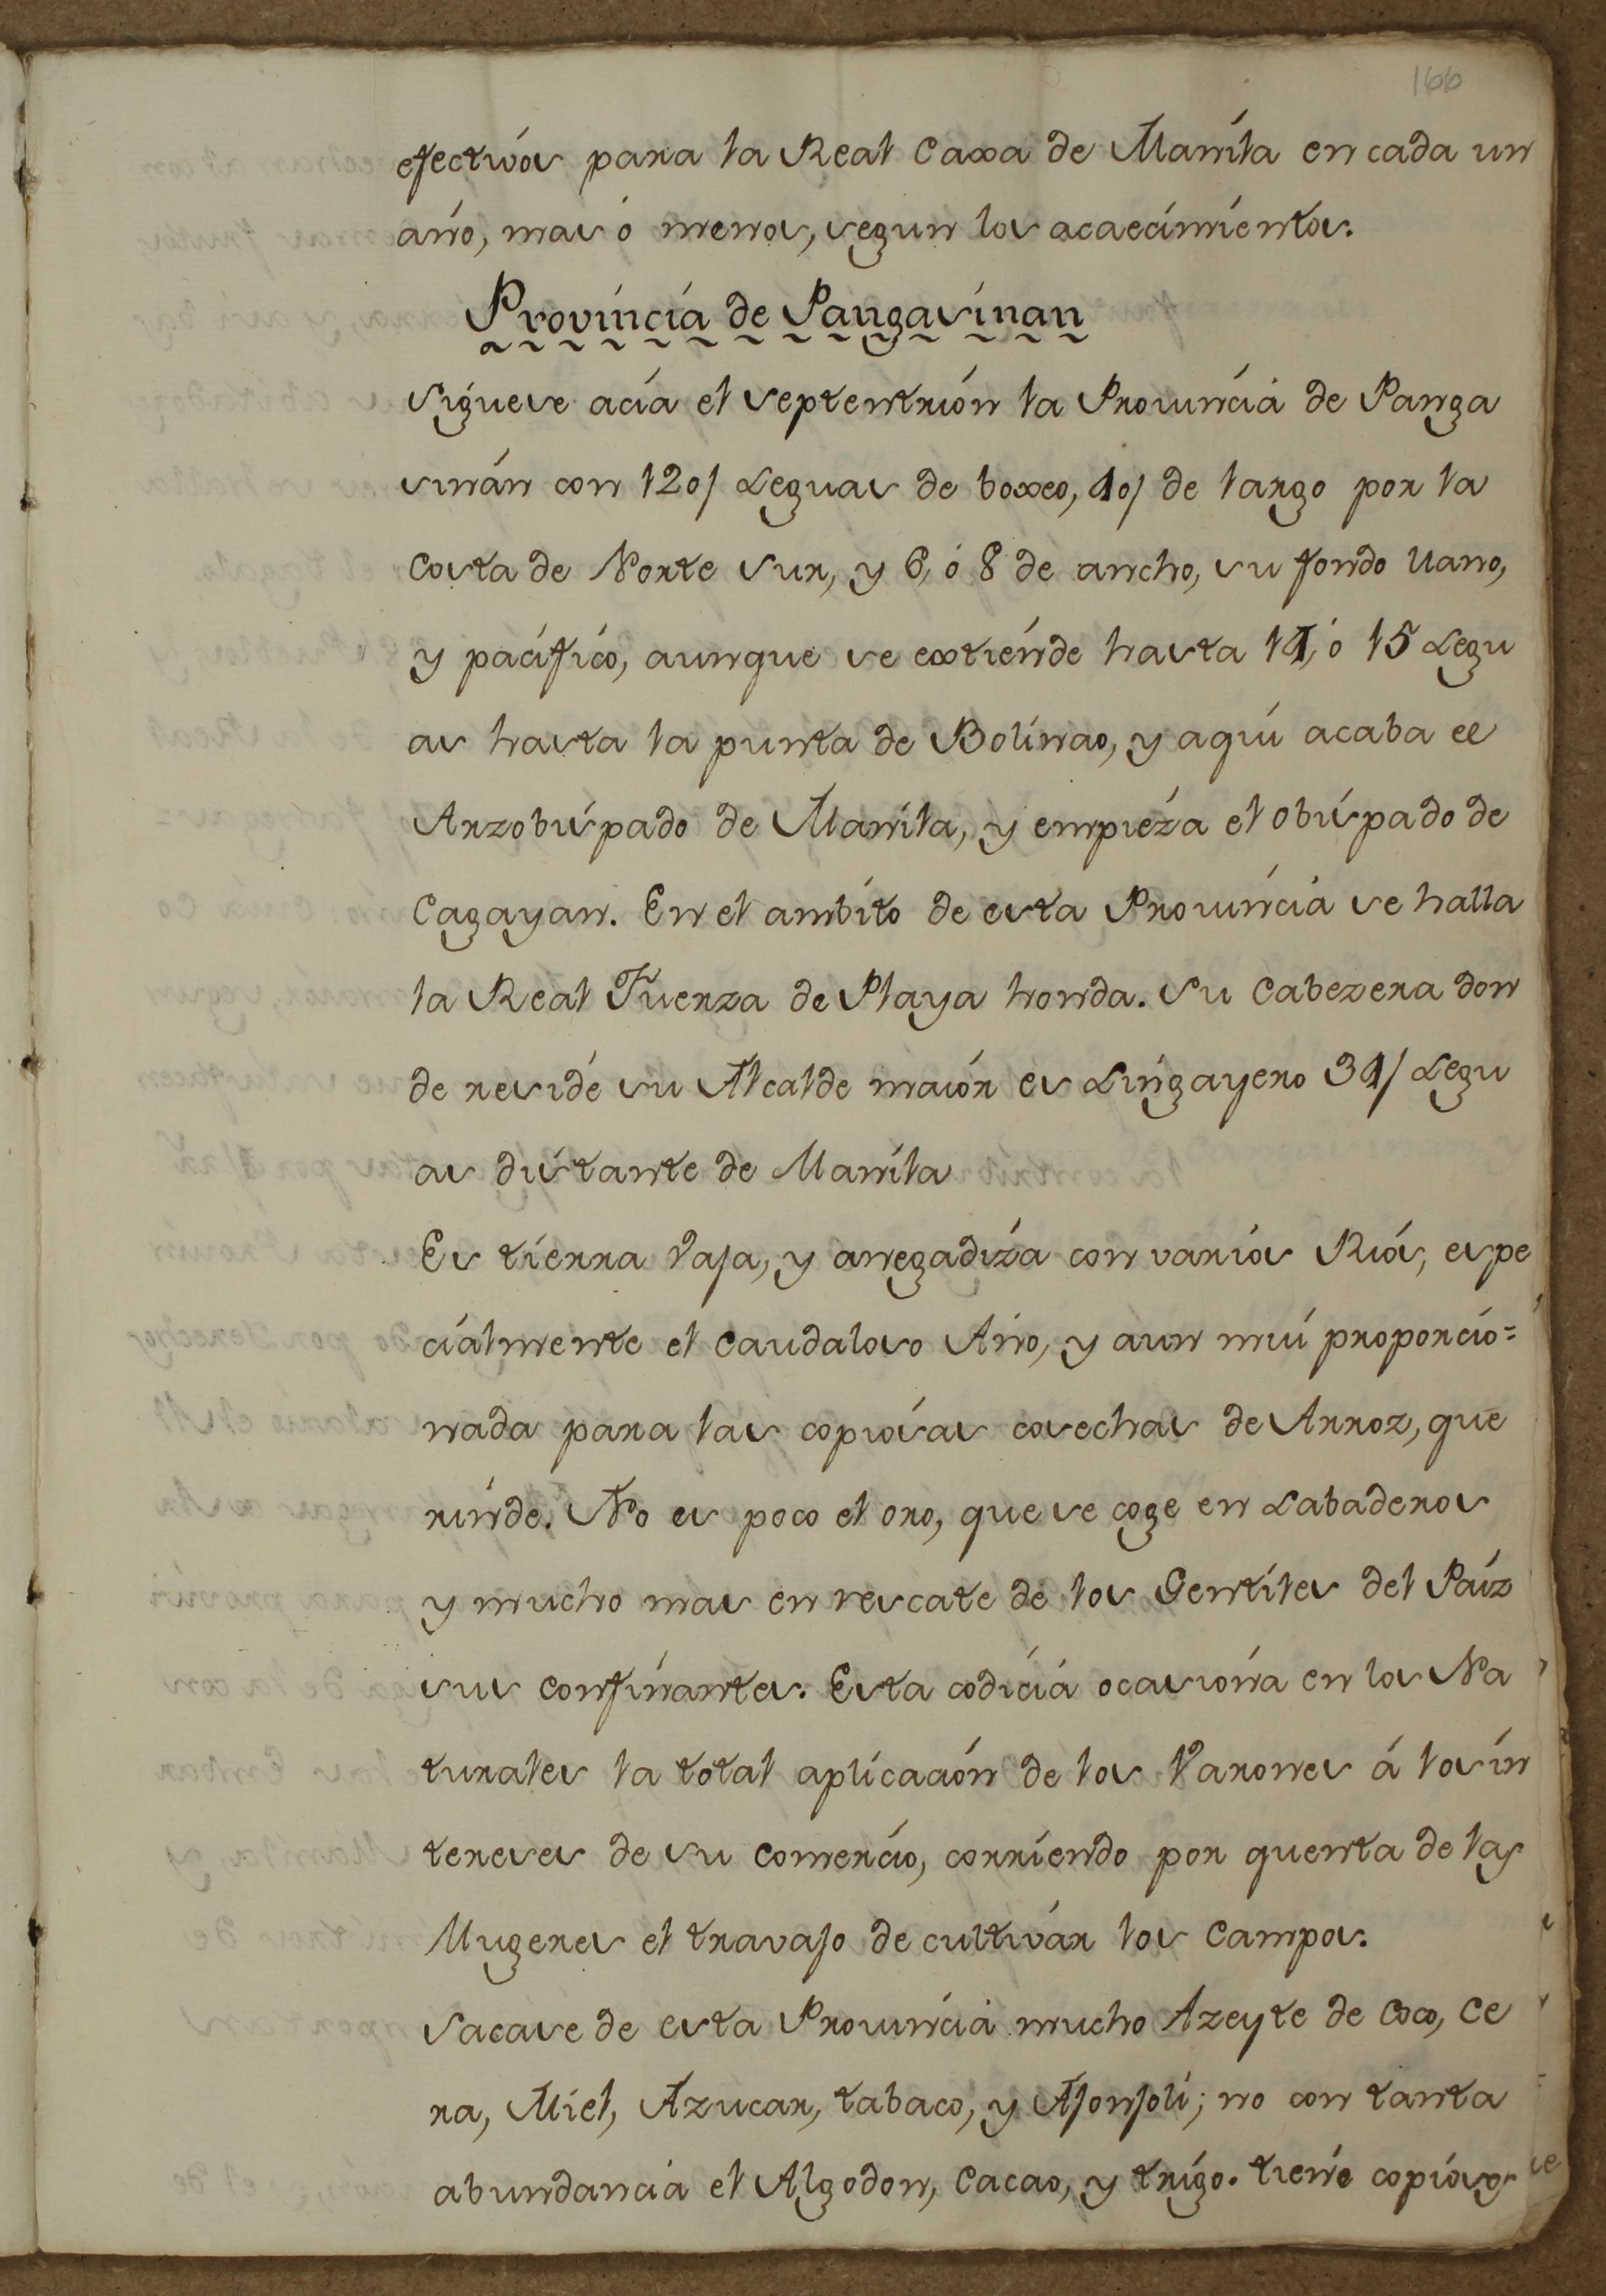 166
efectivos para la Real Caxa de Manila en cada un
año, mas ó menos, segun los acaecimientos.
Provincia de Pangasinan
Siguese acia el septentrion la Provincia de Panga
sinán con 120/ Leguas de boxeo, 40/ de largo por la
Costa de Norte Sur, y 6, ó 8 de ancho, su fondo llano,
y pacifico, aunque se extiende hasta 14, ó 15 Legu
as hasta la punta de Bolinao, y aqui acaba el
Arzobispado de Manila, y empieza el obispado de
Cagayan. En el ambito de esta Provincia se halla
la Real Fuerza de Playa honda. Su Cabezera don
de reside su Alcalde maior es Lingayero 34/ Legu
as distante de Manila
Es tierra Vaja, y anegadiza con varios Rios, espe
cialmente el Caudaloso Año, y aun mui proporcio=
nada para las copiosas cosechas de Arroz, que
rinde. No es poco el oro, que se coge en Labaderos
y mucho mas en rescate de los Gentiles del Paiz
sus confinantes. Esta codicia ocasiona en los Na
turales la total aplicacion de los Varones á los in
tereses de su Comercio, corriendo por quenta de las
Mugeres el travajo de cultivar los Campos.
Sacase de esta Provincia mucho Azeyte de Coco, Ce
ra, Miel, Azucar, tabaco, y Ajonjoli; no con tanta
abundancia el Algodon, Cacao, y trigo. tiene copiosos